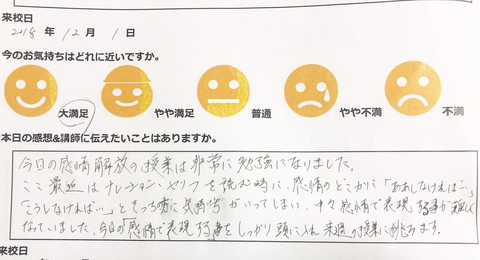 来校日
2018 年 12 月 1 日
今のお気持ちはどれに近いですか。
大満足 やや満足 普通 やや不満 不満
本日の感想&講師に伝えたいことはありますか。
今日の感情解放の授業は非常に勉強になりました。
ここ最近はナレーション・セリフを読む時に、感情のどこかに「ああしなければ…」
「こうしなければ…」とそっち方に気持ちがいってしまい、中々感情で表現する事が難しく
なっていました。今日の「感情で表現する」事をしっかり頭に入れ来週の授業に挑みます。
来校日